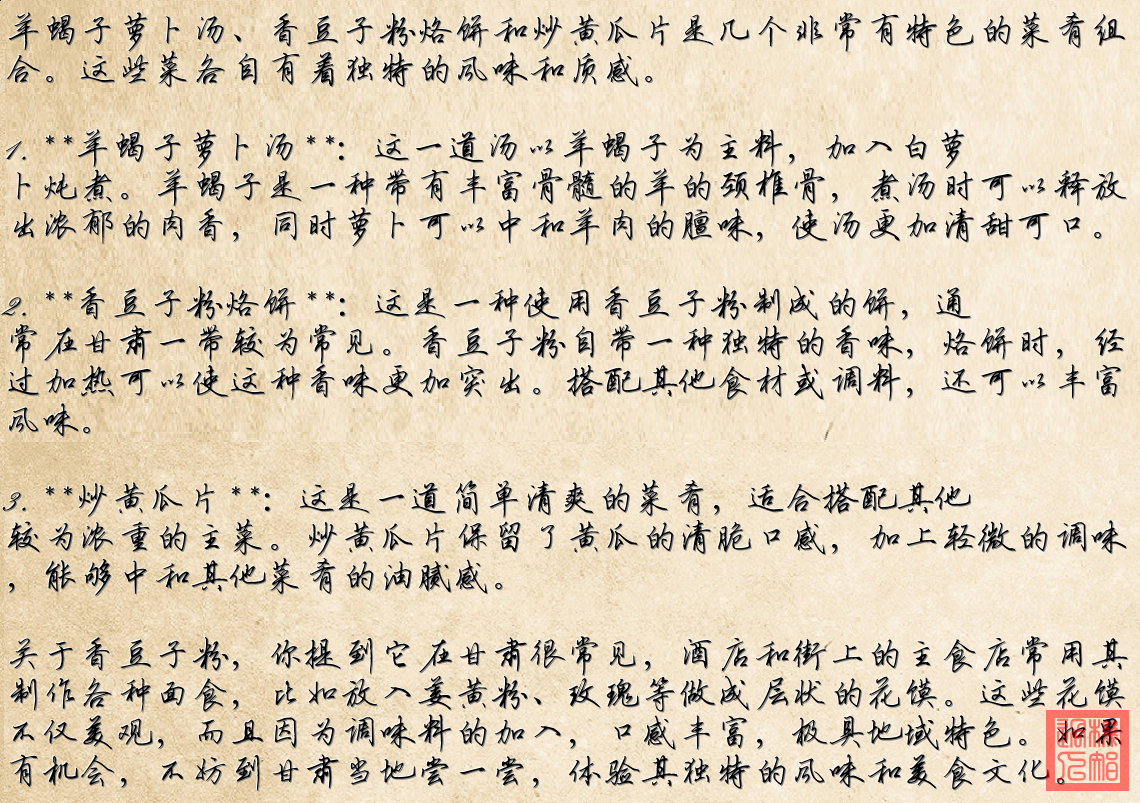 羊蝎子萝卜汤、香豆子粉烙饼和炒黄瓜片是几个非常有特色的菜肴组
合。这些菜各自有着独特的风味和质感。
1. **羊蝎子萝卜汤**：这一道汤以羊蝎子为主料，加入白萝
卜炖煮。羊蝎子是一种带有丰富骨髓的羊的颈椎骨，煮汤时可以释放
出浓郁的肉香，同时萝卜可以中和羊肉的膻味，使汤更加清甜可口。
2. **香豆子粉烙饼**：这是一种使用香豆子粉制成的饼，通
常在甘肃一带较为常见。香豆子粉自带一种独特的香味，烙饼时，经
过加热可以使这种香味更加突出。搭配其他食材或调料，还可以丰富
风味。
3. **炒黄瓜片**：这是一道简单清爽的菜肴，适合搭配其他
较为浓重的主菜。炒黄瓜片保留了黄瓜的清脆口感，加上轻微的调味
，能够中和其他菜肴的油腻感。
关于香豆子粉，你提到它在甘肃很常见，酒店和街上的主食店常用其
制作各种面食，比如放入姜黄粉、玫瑰等做成层状的花馍。这些花馍
不仅美观，而且因为调味料的加入，口感丰富，极具地域特色。如果
有机会，不妨到甘肃当地尝一尝，体验其独特的风味和美食文化。